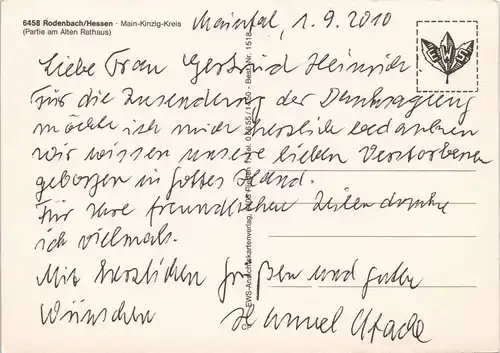 6458 Rodenbach/Hessen · Main-Kinzig-Kreis
(Partie am Alten Rathaus)
Maintal, 1.9.2010
Liebe Frau Gertrud Heinrich.
Für die Zusendung der Danksagung
möchte ich mich herzlich bedanken
wir wissen unsere lieben Verstorbenen
geborgen in Gottes Hand.
Für Ihre freundlichen Zeilen danke
ich vielmals.
Mit herzlichen Grüßen und guten
Wünschen
EWS-Ansichtskartenverlag, Best.-Nr. 1518